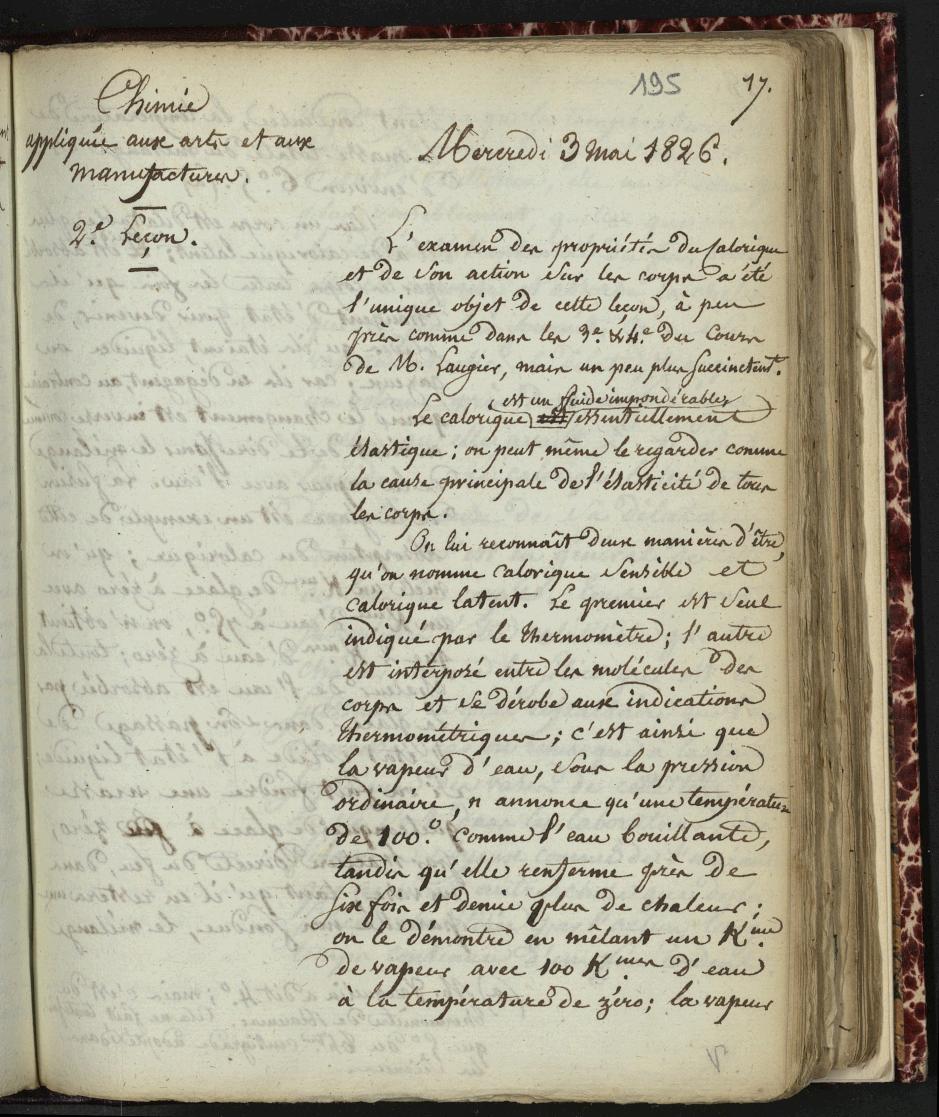 195
17.
Chimie
appliquée aux arts et aux
manufactures.
2.e Leçon.
Mercredi 3 Mai 1826.
L'examen des propriétés du Calorique
et de son action sur les corps a été
l'unique objet de cette leçon, à peu
près comme dans les 3.e & 4.e du Cours
de M. Laugier, mais un peu plus succinctemt.
est un fluide impondérable,
Le calorique est essentiellement
élastique; on peut même le regarder comme
la cause principale de l'élasticité de tous
les corps.
On lui reconnaît deux manières d'être,
qu'on nomme calorique sensible et
calorique latent. Le premier est seul
indiqué par le thermomètre; l'autre
est interposé entre les molécules des
corps et se dérobe aux indications
thermométriques; c'est ainsi que
la vapeur d'eau, sous la pression
ordinaire, n'annonce qu'une températu
de 100.° comme l'eau bouillante,
tandis qu'elle renferme près de
six fois et demie plus de chaleur;
on le démontre en mêlant un K.me
de vapeur avec 100 K.mes d'eau
à la température de zéro; la vapeur